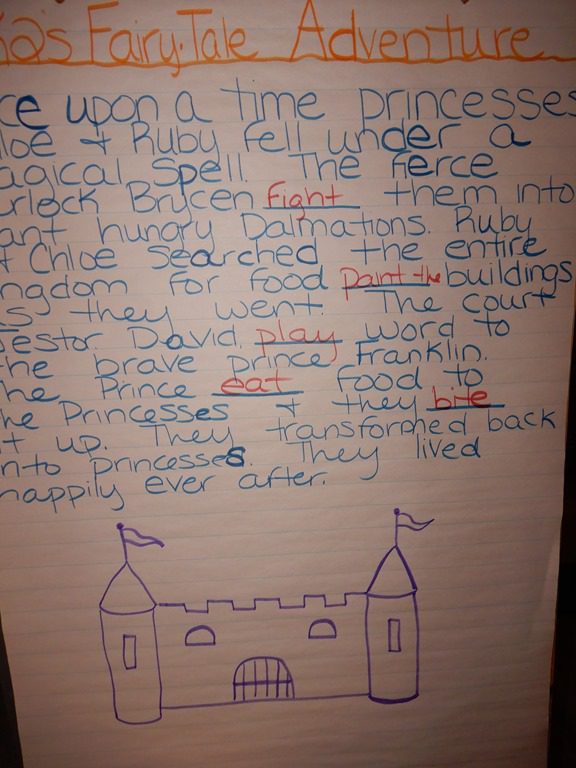 's Fairy-Tale Adventure
ce upon a time princesses
loe & Ruby fell under a
agical spell. The fierce
rlock Brycen fight them into
ant hungry Dalmations. Ruby
& Chloe searched the entire
ngdom for food paint the buildings
s they went. The court
estor David play word to
he brave prince Franklin.
he Prince eat food to
he Princesses & they bite
it up. They transformed back
into princesses. They lived
happily ever after.